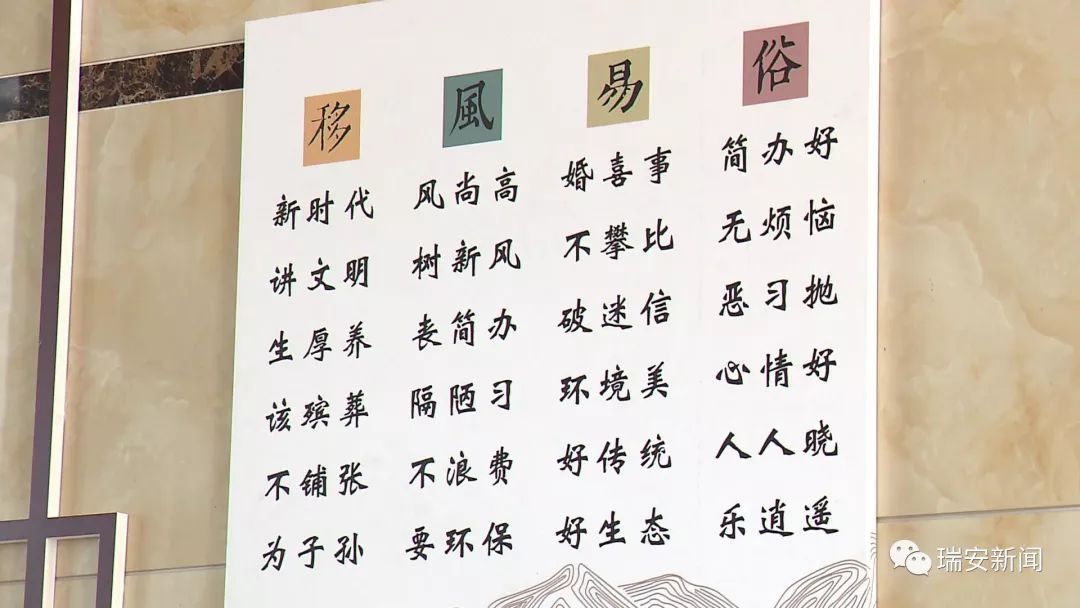 移 風 易 俗
新时代 风尚高 婚喜事 简办好
讲文明 树新风 不攀比 无烦恼
生厚养 丧简办 破迷信 恶习抛
该殡葬 隔陋习 环境美 心情好
不铺张 不浪费 好传统 人人晓
为子孙 要环保 好生态 乐逍遥
瑞安新闻